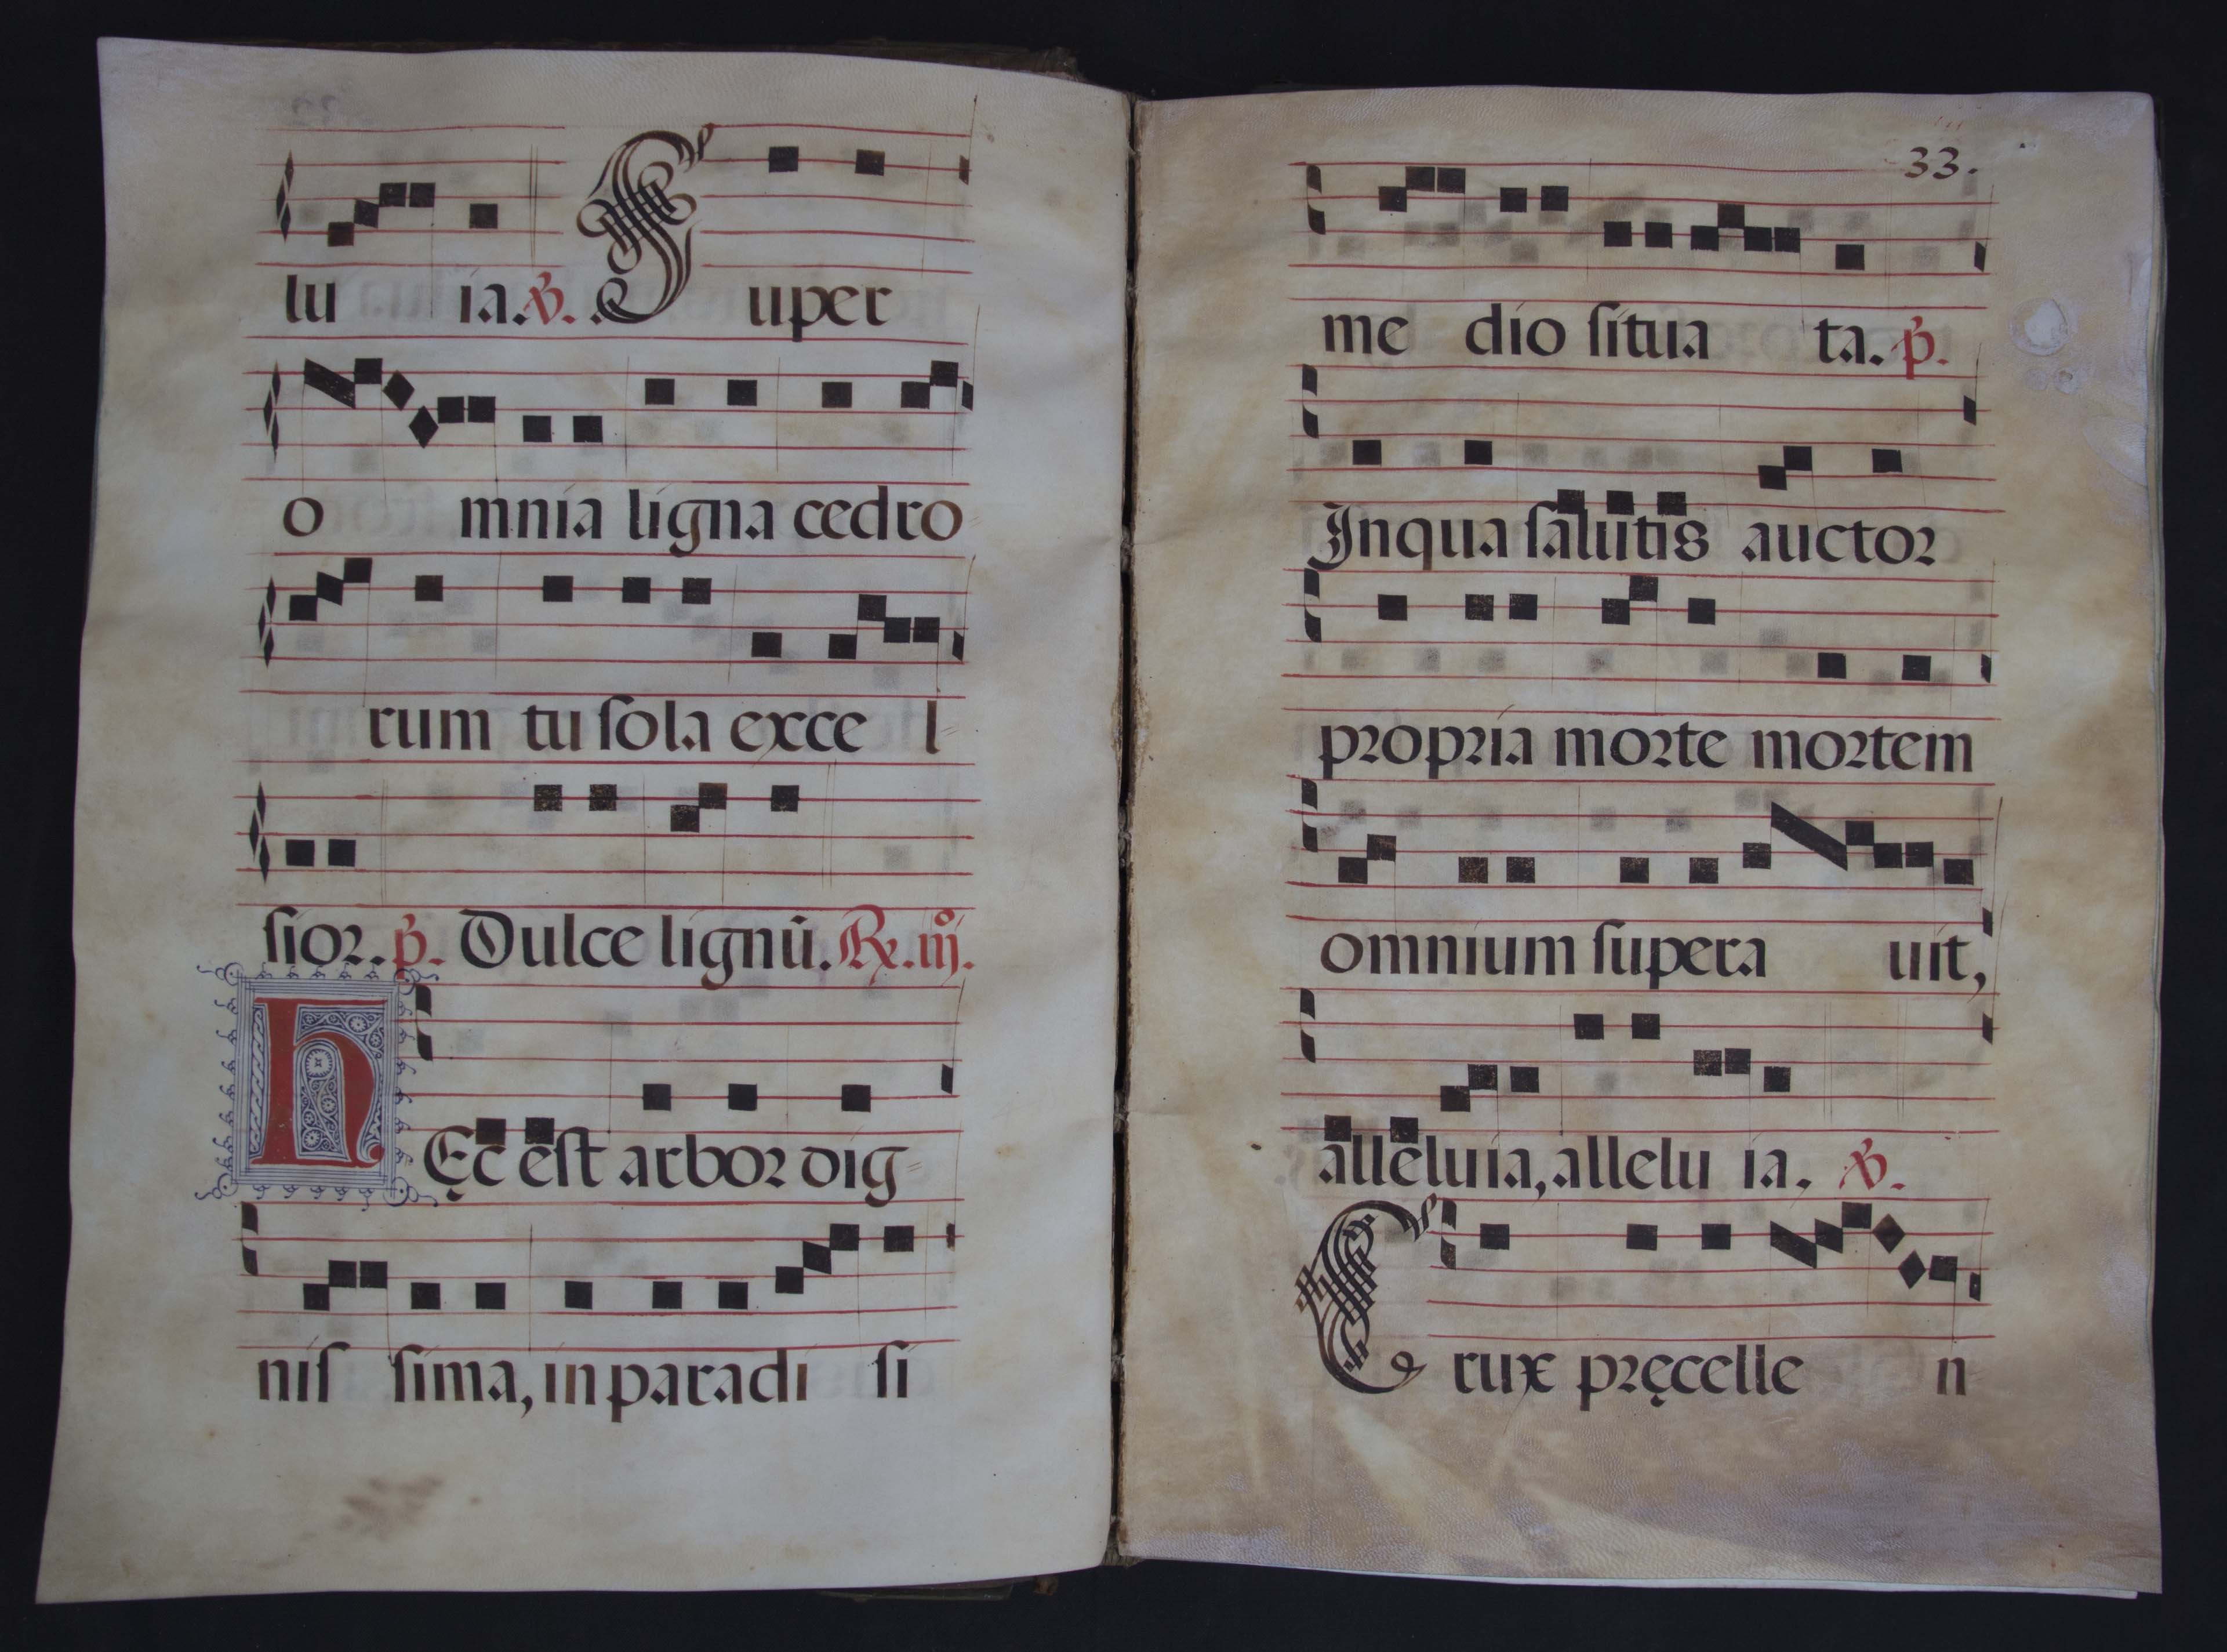 lu ia. ℣. Super
o mnia ligna cedro=
rum tu sola exce l=
sior. p̃. Dulce lignũ. ℞. iijͦ.
HEc̨ est arbor dig=
nis sima, in paradi si
33.
me dio situa ta. p̃.
In qua salutis auctor
propria morte mortem
omnium supera uit,
alleluia, allelu ia, ℣.
Crux pręcelle n